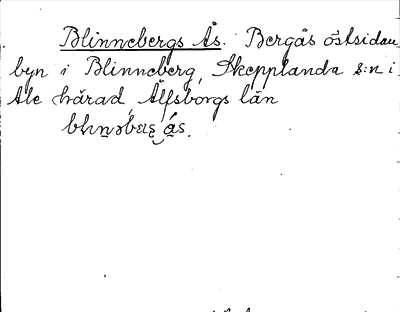 Blinnebergs Ås. Bergås östsidan
byn i Blinneberg, Skepplanda s:n i
Ale härad, Älfsborgs län
ås.